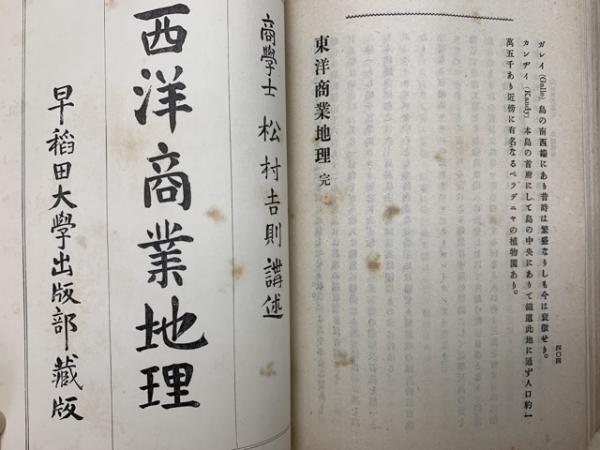 四〇四
ガレイ (Galle) 島の南西端にあり昔時は繁盛なりしも今は衰頽せり。
カンディ (Kandy) 本島の首府にして島の中央にありて鐵道此地に通ず人口約一
萬五千あり近傍に有名なるペラデニヤの植物園あり。
東洋商業地理 完
商學士 松村吉則 講述
西洋商業地理
早稻田大學出版部藏版